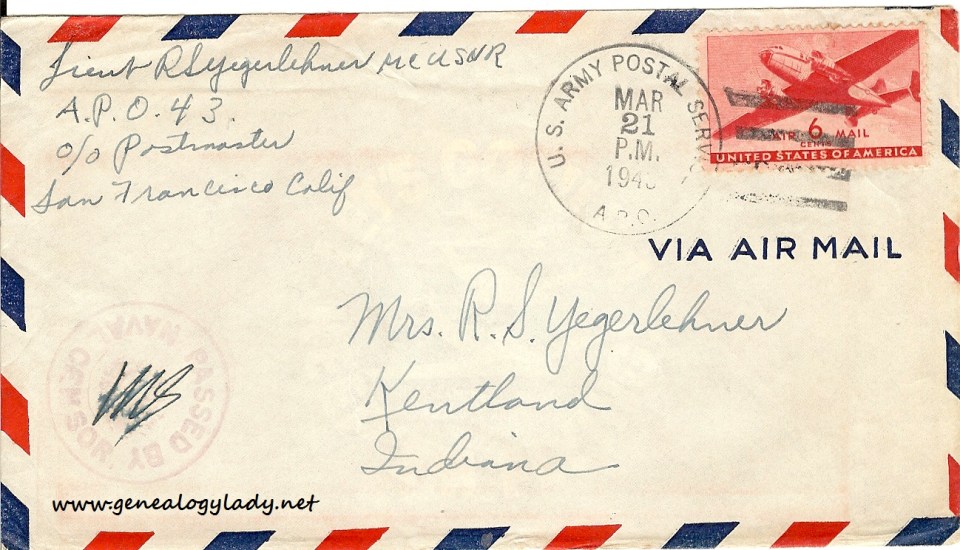 Lieut R S Yegerlehner MC USNR
A.P.O. 43.
c/o Postmaster
San Francisco Calif
U.S. ARMY POSTAL SERV
MAR
21
P.M.
A.P.O.
AIR 6 MAIL
CENTS
UNITED STATES OF AMERICA
VIA AIR MAIL
Mrs. R. S. Yegerlehner
Kentland
Indiana
PASSED BY
NAVAL CENSOR
www.genealogylady.net